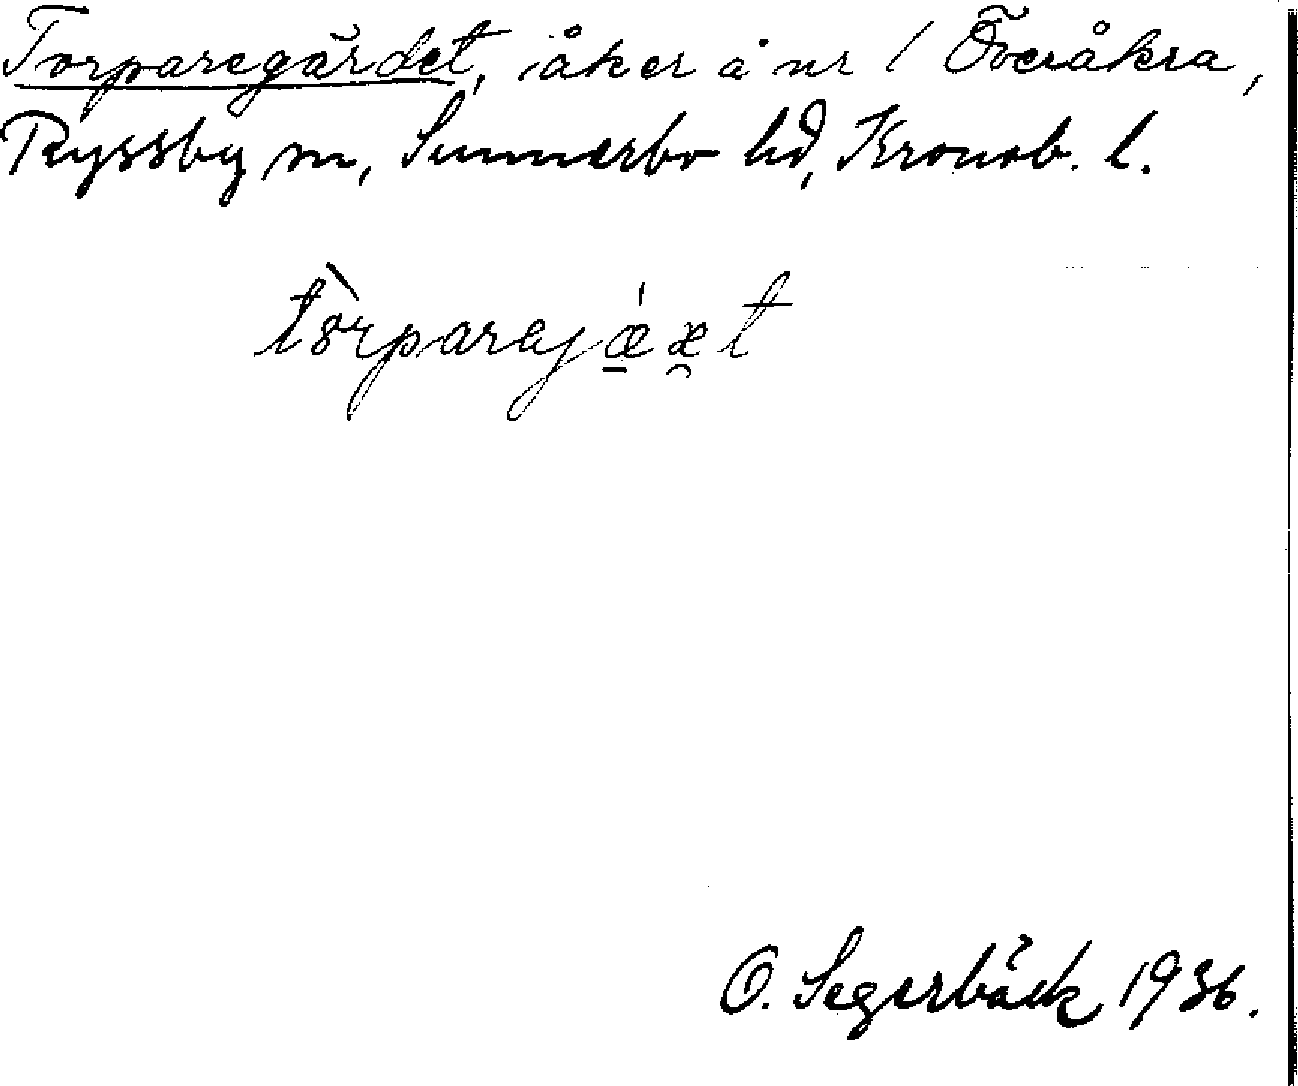 Torparegärdet, åker å nr 1 Överåkra,
Ryssby sn, Sunnerbo hd, Kronob. l.
O. Segerbäck 1936.